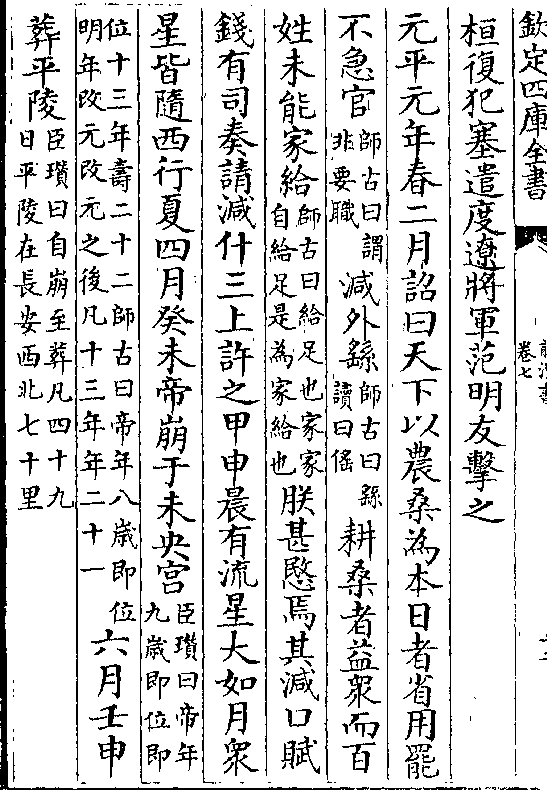 欽定四庫全書
卷七
桓復犯塞遣度遼將軍范明友擊之
元平元年春二月詔曰天下以農桑為本日者省用罷
不急官師古曰謂非要職減外繇師古曰繇讀曰傜耕桑者益衆而百
姓未能家給師古曰給足也家家自給足是為家給也朕甚愍焉其減口賦
錢有司奏請減什三上許之甲申晨有流星大如月衆
星皆隨西行夏四月癸未帝崩于未央宫臣瓚曰帝年九歲即位即
位十三年壽二十二師古曰帝年八歲即位明年改元改元之後凡十三年年二十一六月壬申
葬平陵臣瓚曰自崩至葬凡四十九日平陵在長安西北七十里